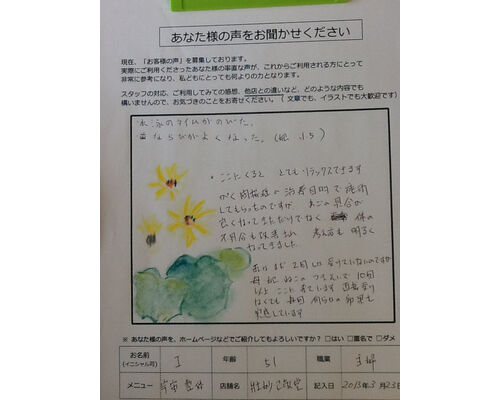 あなた様の声をお聞かせください
現在、「お客様の声」を募集しております。
実際にご利用くださったあなた様の率直な声が、これからご利用される方にとって
非常に参考になり、私どもにとっても何よりの力となります。
スタッフの対応、ご利用してみての感想、他店との違いなど、どのような内容でも
構いませんので、お気づきのことをお寄せください。（ 文章でも、イラストでも大歓迎です）
水泳のタイムがのびた。
歯ならびがよくなった。
・ここにくると とてもリラックスできます
がく関節症の治療目的で施術
してもらったのですが あごの具合が
良くなってきただけでなく 体の
不具合も改善され 考え方も明るく
なってきました
私はまだ2回しか受けていないのですが
母が ここのつきそいで10回
以上 ここに来ています 直接受
なくても 毎回 何らかの効果を
実感しています
※ あなた様の声を、ホームページなどでご紹介してもよろしいですか？ □はい □匿名で □ダメ
お名前 (イニシャル可) I 年齢 51 職業 主婦
メニュー 宇宙整体 店舗名 記入日 2013年3月23日